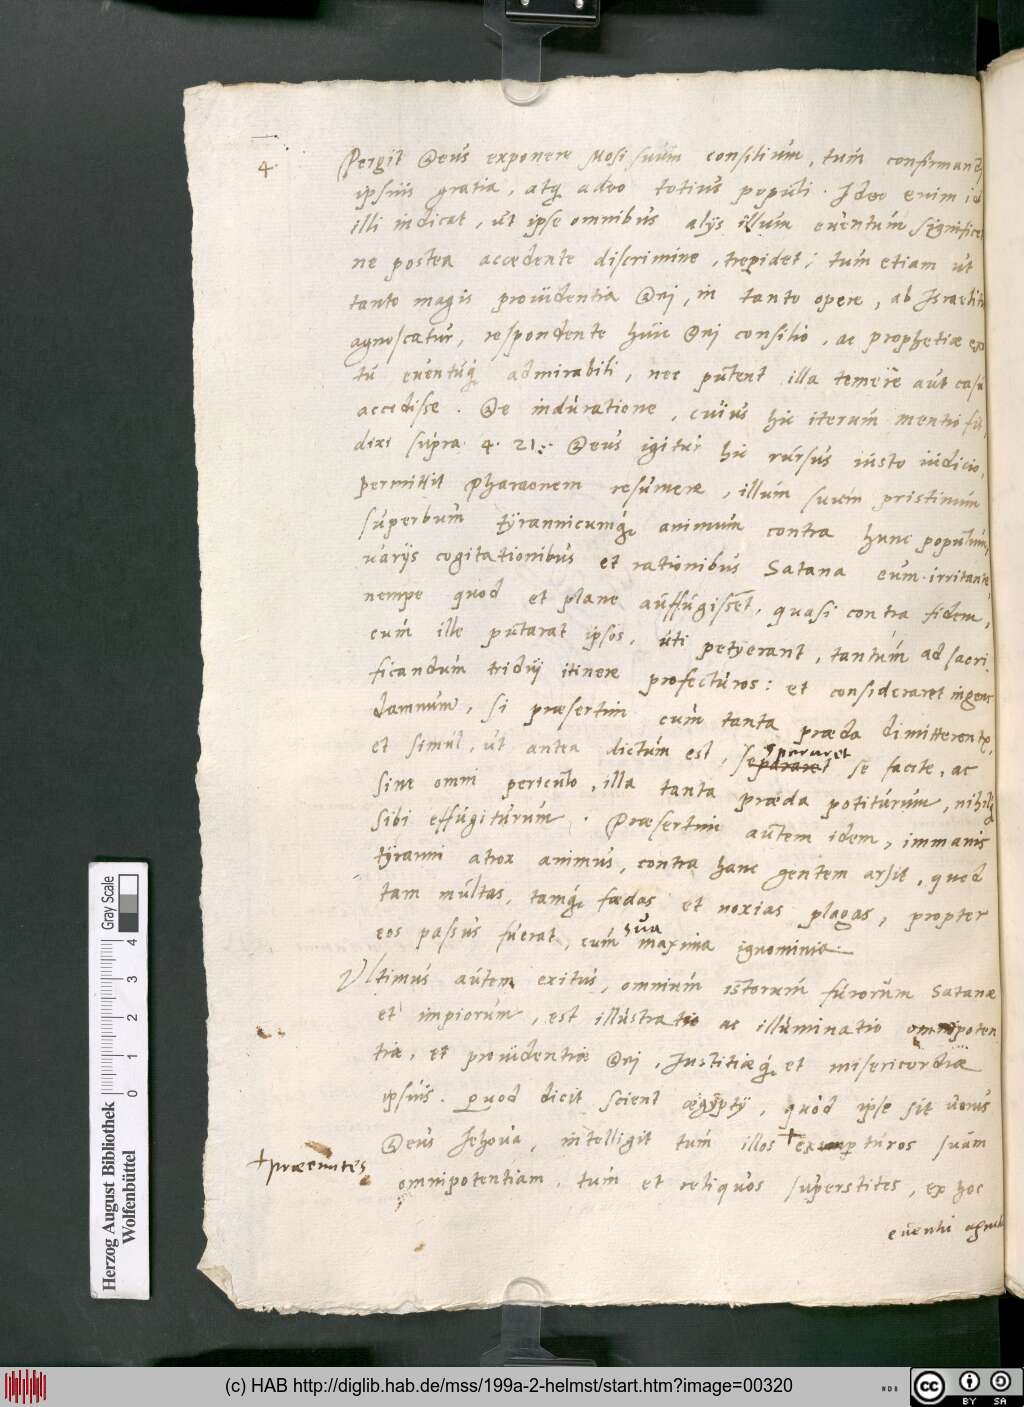 4. Pergit Deus exponere Mosi suum consilium, tum confirmand
ipsius gratia, atq; adeo totius populi. Ideo enim id
illi indicat, ut ipse omnibus alijs illum euentum significet
ne postea accedente discrimine, trepidet; tum etiam ut
tanto magis prouidentia Dei, in tanto opere, ab Israelitis
agnoscatur, respondente huic Dei consilio, ac prophetiæ
tu euentuq; admirabili, nec putent illa temere aut casu
accedisse. De induratione, cuius hic iterum mentio fit,
dixi supra 4. 21. Deus igitur hic rursus iusto iudicio,
permittit Pharaonem resumere, illum suum pristinum
superbum tyrannicumq; animum contra hunc populum,
varijs cogitationibus et rationibus Satana eum irritante
nempe quod et plane auffugissent, quasi contra fidem,
cum ille putarat ipsos, uti petyerant, tantum ad sacri
ficandum tridui itinere profecturos: et consideraret ingens
damnum, si præsertim cum tanta præda dimitterent
et simul, ut antea dictum est, separaret speraret se facile, ac
sine omni periculo, illa tanta præda potiturum, nihilq;
sibi effugiturum. Præsertim autem idem, immanis
tyranni atrox animus, contra hanc gentem arsit, quod
tam multas, tamq; fœdas et noxias plagas, propter
eos passus fuerat, cum sua maxima ignominia.
Ultimus autem exitus, omnium istorum furorum Satanæ
et impiorum, est illustratio ac illuminatio omnipoten
tiæ, et prouidentiæ Dei, Iustitiæq; et misericordiæ
ipsius. quod dicit scient ægyptij, quod ipse sit uerus
Deus Iehoua, intelligit tum illos + experturos suam
+ præeuntes
omnipotentiam, tum et reliquos superstites, ex hoc
euentu
Gray Scale
0 1 2 3 4
Herzog August Bibliothek
Wolfenbüttel
(c) HAB http://diglib.hab.de/mss/199a-2-helmst/start.htm?image=00320
cc BY SA